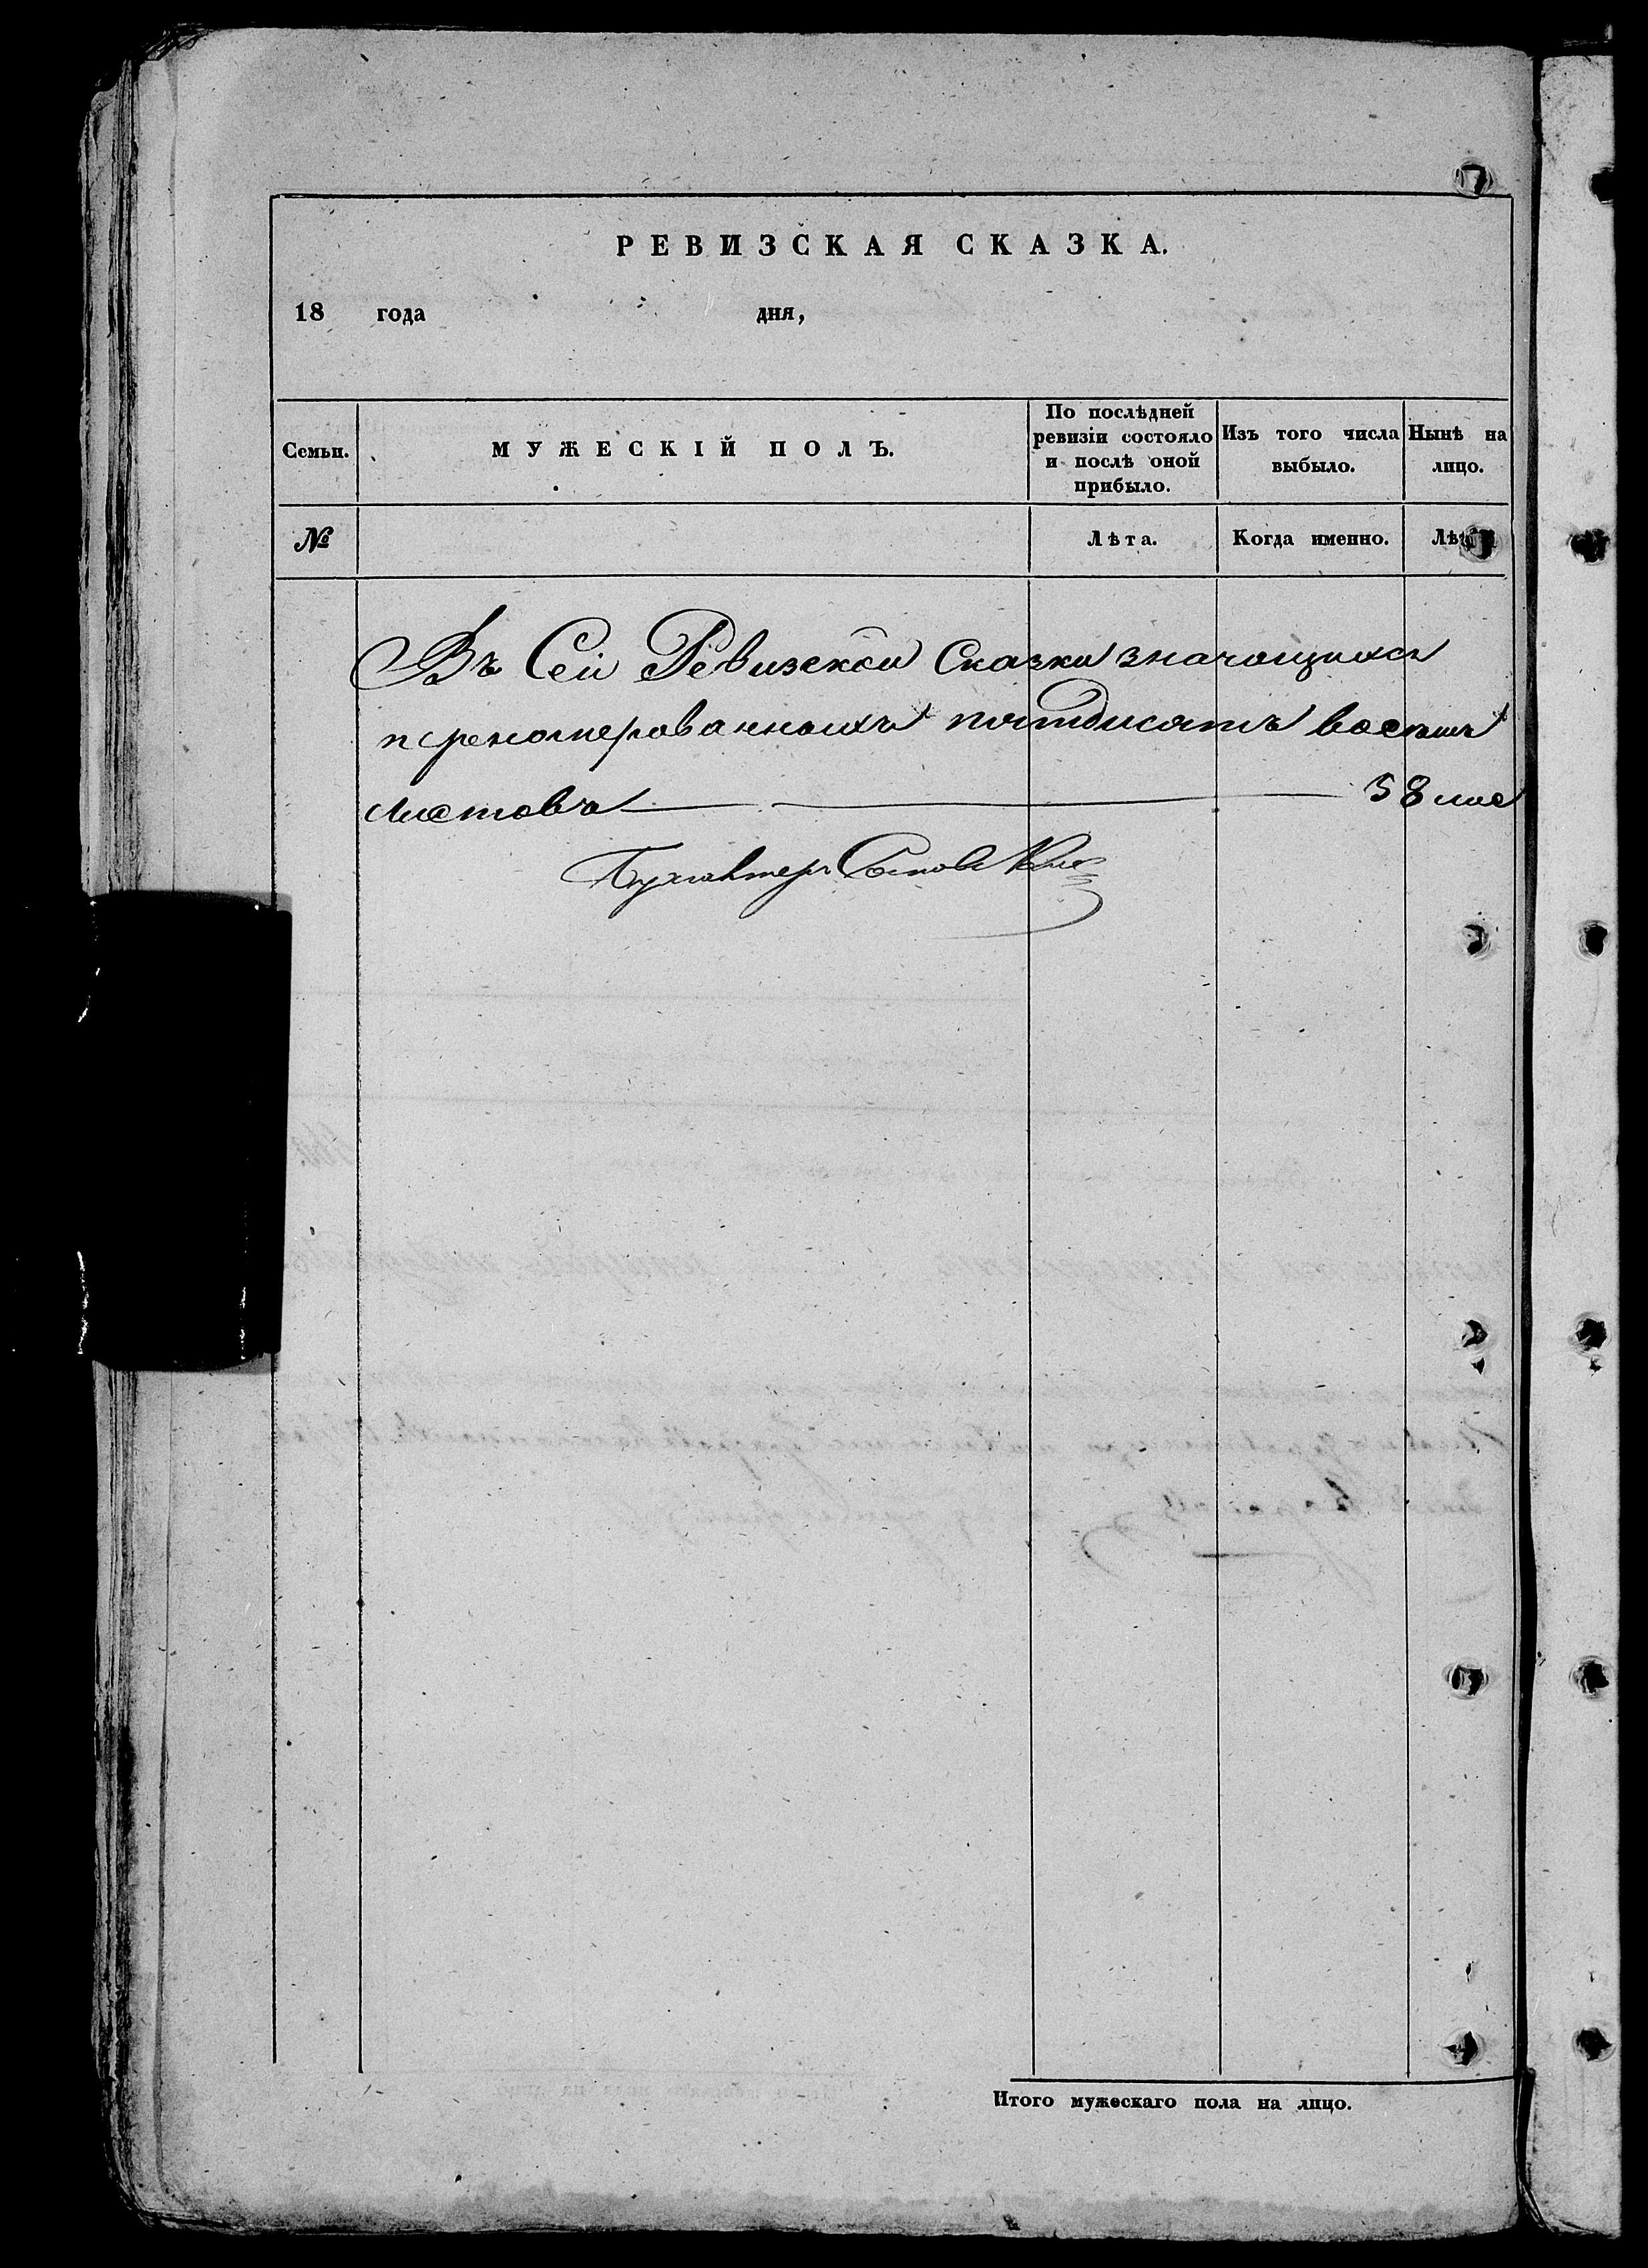 РЕВИЗСКАЯ СКАЗКА.
18 года дня,
Семьи.
МУЖЕСКІЙ ПОЛЪ.
По послѣдней ревизіи состояло и послѣ оной прибыло.
Изъ того числа выбыло.
Нынѣ на лицо.
№
Лѣта.
Когда именно.
Въ Сей Ревизской Сказки значащихся
переномерованныхъ пятдисятъ восемь
листовъ 58 лис
Бухгалтеръ
Итого мужескаго пола на лицо.